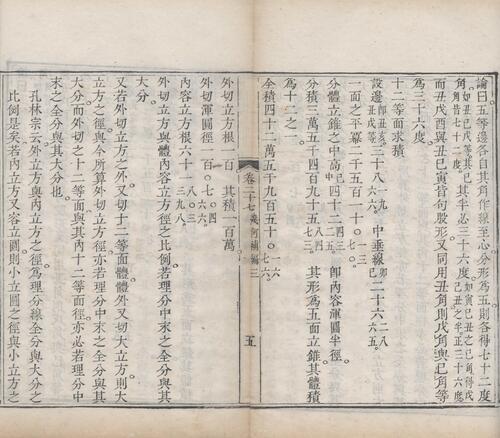 論曰五等邊各自其角作線至心分形為五則各得七十二度
而丑戌酉與丑巳寅皆句股形又同用丑角則戌角與巳角等
為三十六度
十二等面求積
設邊三十八一九六六〇中垂線二十六二八六五
一面之平冪二千五百一十〇
分體立錐之中高四十二即內容渾圓半徑
分積三萬五千四百九十五其形為五面立錐其體積
為十二之一
全積四十二萬五千九百五十〇一六七六
卷二十七幾何補編三
五
外切立方根一百 其積一百萬
外切渾圓徑一百〇七〇四六六
內容立方根六十一八〇三九八
外切立方與體內容立方之比例若理分中末之全分與其
大分
又若外切立方之外又切十二等面體體外又切大立方則大
立方之徑與今所算外切立方徑亦若理分中末之全分與其
大分而外切之十二等面與其內十二等面徑亦必若理分中
末之全分與其大分也
孔林宗云外立方與內立方之徑為理分線全分與大分之
比例是矣若內立方又容立圓則小立圓之徑與小立方之